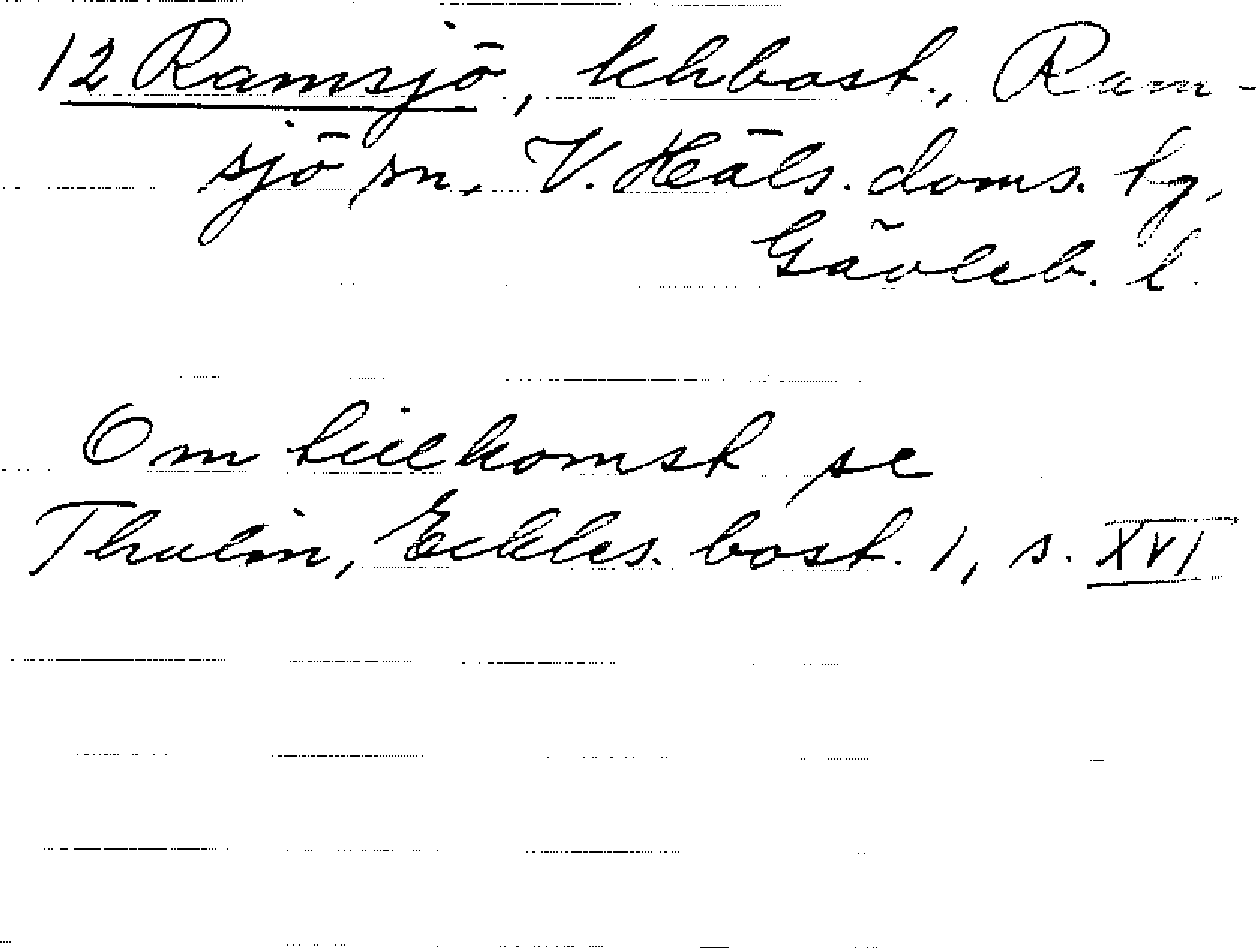 12 Ramsjö, khbost., Ram-
sjö sn, V. Häls. doms. tg,
Gävleb. l.
Om tillkomst se
Thulin, Eckles. bost. 1, s. XVI